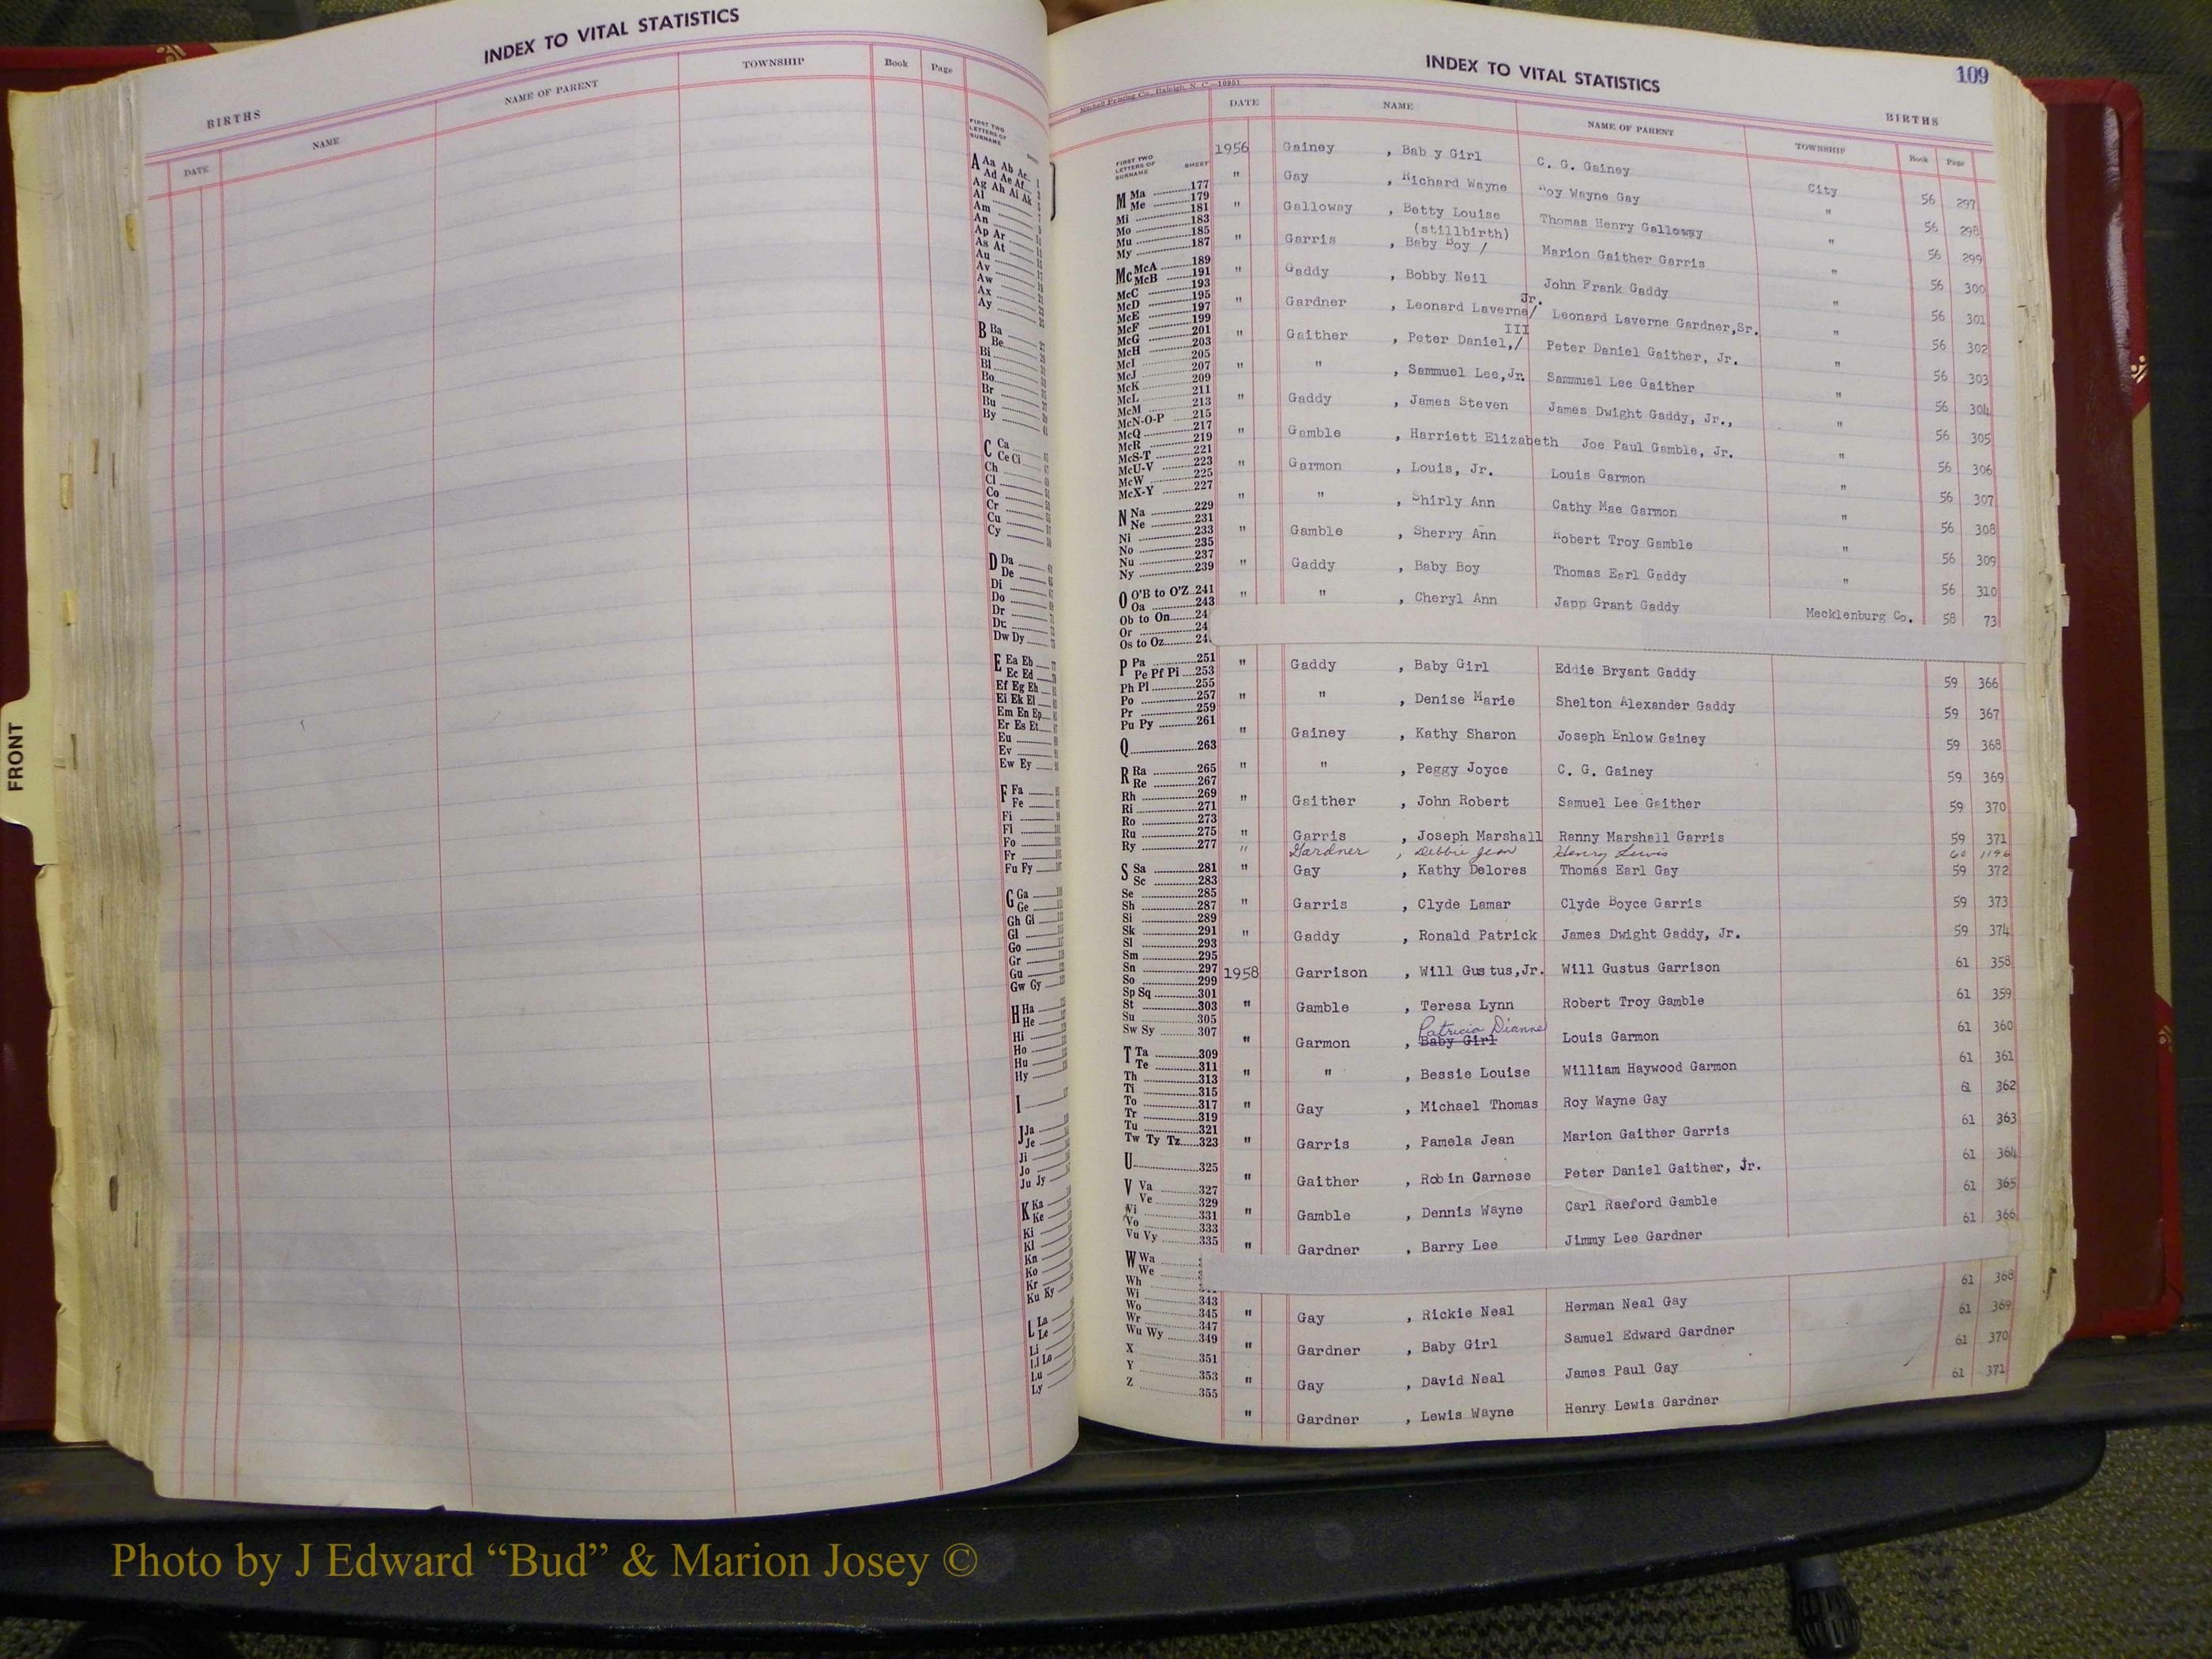 INDEX TO VITAL STATISTICS
BIRTHS
DATE NAME NAME OF PARENT TOWNSHIP Book Page
FIRST TWO
LETTERS OF
SURNAME SHEET
A Aa Ab Ac
Ad Ae Af
Ag Ah Ai Ak
Al
Am
An
Ap Ar
As At
Au
Av
Aw
Ax
Ay
B Ba
Be
Bi
Bl
Bo
Br
Bu
By
C Ca
Ce Ci
Ch
Cl
Co
Cr
Cu
Cy
D Da
De
Di
Do
Dr
Du
Dw Dy
E Ea Eb
Ec Ed
Ef Eg Eh
Ei Ek El
Em En Ep
Er Es Et
Eu
Ev
Ew Ey
F Fa
Fe
Fi
Fl
Fo
Fr
Fu Fy
G Ga
Ge
Gh Gi
Gl
Go
Gr
Gu
Gw Gy
H Ha
He
Hi
Ho
Hu
Hy
I
J Ja
Je
Ji
Jo
Ju Jy
K Ka
Ke
Ki
Kl
Kn
Ko
Kr
Ku Ky
L La
Le
Li
Ll Lo
Lu
Ly
FRONT
INDEX TO VITAL STATISTICS 109
Mitchell Printing Co., Raleigh, N. C.—10951
BIRTHS
DATE NAME NAME OF PARENT TOWNSHIP Book Page
FIRST TWO
LETTERS OF
SURNAME SHEET
M Ma 177
Me 179
Mi 181
Mo 183
Mu 185
My 187
Mc McA 189
McB 191
McC 193
McD 195
McE 197
McF 199
McG 201
McH 203
McI 205
McJ 207
McK 209
McL 211
McM 213
McN-O-P 215
McQ 217
McR 219
McS-T 221
McU-V 223
McW 225
McX-Y 227
N Na 229
Ne 231
Ni 233
No 235
Nu 237
Ny 239
O O'B to O'Z 241
Oa 243
Ob to On 24
Or 24
Os to Oz 24
P Pa 251
Pe Pf Pi 253
Ph Pl 255
Po 257
Pr 259
Pu Py 261
Q 263
R Ra 265
Re 267
Rh 269
Ri 271
Ro 273
Ru 275
Ry 277
S Sa 281
Sc 283
Se 285
Sh 287
Si 289
Sk 291
Sl 293
Sm 295
Sn 297
So 299
Sp Sq 301
St 303
Su 305
Sw Sy 307
T Ta 309
Te 311
Th 313
Ti 315
To 317
Tr 319
Tu 321
Tw Ty Tz 323
U 325
V Va 327
Ve 329
Vi 331
Vo 333
Vu Vy 335
W Wa
We
Wh
Wi 343
Wo 345
Wr 347
Wu Wy 349
X 351
Y 353
Z 355
1956 Gainey , Baby Girl C. G. Gainey City 56 297
" Gay , Richard Wayne Roy Wayne Gay " 56 298
" Galloway , Betty Louise Thomas Henry Galloway " 56 299
(stillbirth)
" Garris , Baby Boy / Marion Gaither Garris " 56 300
" Gaddy , Bobby Neil John Frank Gaddy " 56 301
Jr.
" Gardner , Leonard Laverne/ Leonard Laverne Gardner,Sr. " 56 302
III
" Gaither , Peter Daniel,/ Peter Daniel Gaither, Jr. " 56 303
" " , Sammuel Lee,Jr. Sammuel Lee Gaither " 56 304
" Gaddy , James Steven James Dwight Gaddy, Jr., " 56 305
" Gamble , Harriett Elizabeth Joe Paul Gamble, Jr. " 56 306
" Garmon , Louis, Jr. Louis Garmon " 56 307
" " , Shirly Ann Cathy Mae Garmon " 56 308
" Gamble , Sherry Ann Robert Troy Gamble " 56 309
" Gaddy , Baby Boy Thomas Earl Gaddy " 56 310
" " , Cheryl Ann Japp Grant Gaddy Mecklenburg Co. 58 73
" Gaddy , Baby Girl Eddie Bryant Gaddy 59 366
" " , Denise Marie Shelton Alexander Gaddy 59 367
" Gainey , Kathy Sharon Joseph Enlow Gainey 59 368
" " , Peggy Joyce C. G. Gainey 59 369
" Gaither , John Robert Samuel Lee Gaither 59 370
" Garris , Joseph Marshall Ranny Marshall Garris 59 371
" Gardner , Debbie Jean Henry Lewis 60 1196
" Gay , Kathy Delores Thomas Earl Gay 59 372
" Garris , Clyde Lamar Clyde Boyce Garris 59 373
" Gaddy , Ronald Patrick James Dwight Gaddy, Jr. 59 374
1958 Garrison , Will Gustus,Jr. Will Gustus Garrison 61 358
" Gamble , Teresa Lynn Robert Troy Gamble 61 359
Patricia Dianne
" Garmon , Baby Girl Louis Garmon 61 360
" " , Bessie Louise William Haywood Garmon 61 361
" Gay , Michael Thomas Roy Wayne Gay 61 362
" Garris , Pamela Jean Marion Gaither Garris 61 363
" Gaither , Robin Garnese Peter Daniel Gaither, Jr. 61 364
" Gamble , Dennis Wayne Carl Raeford Gamble 61 365
" Gardner , Barry Lee Jimmy Lee Gardner 61 366
" Gay , Rickie Neal Herman Neal Gay 61 368
" Gardner , Baby Girl Samuel Edward Gardner 61 369
" Gay , David Neal James Paul Gay 61 370
" Gardner , Lewis Wayne Henry Lewis Gardner 61 371
Photo by J Edward “Bud” & Marion Josey ©